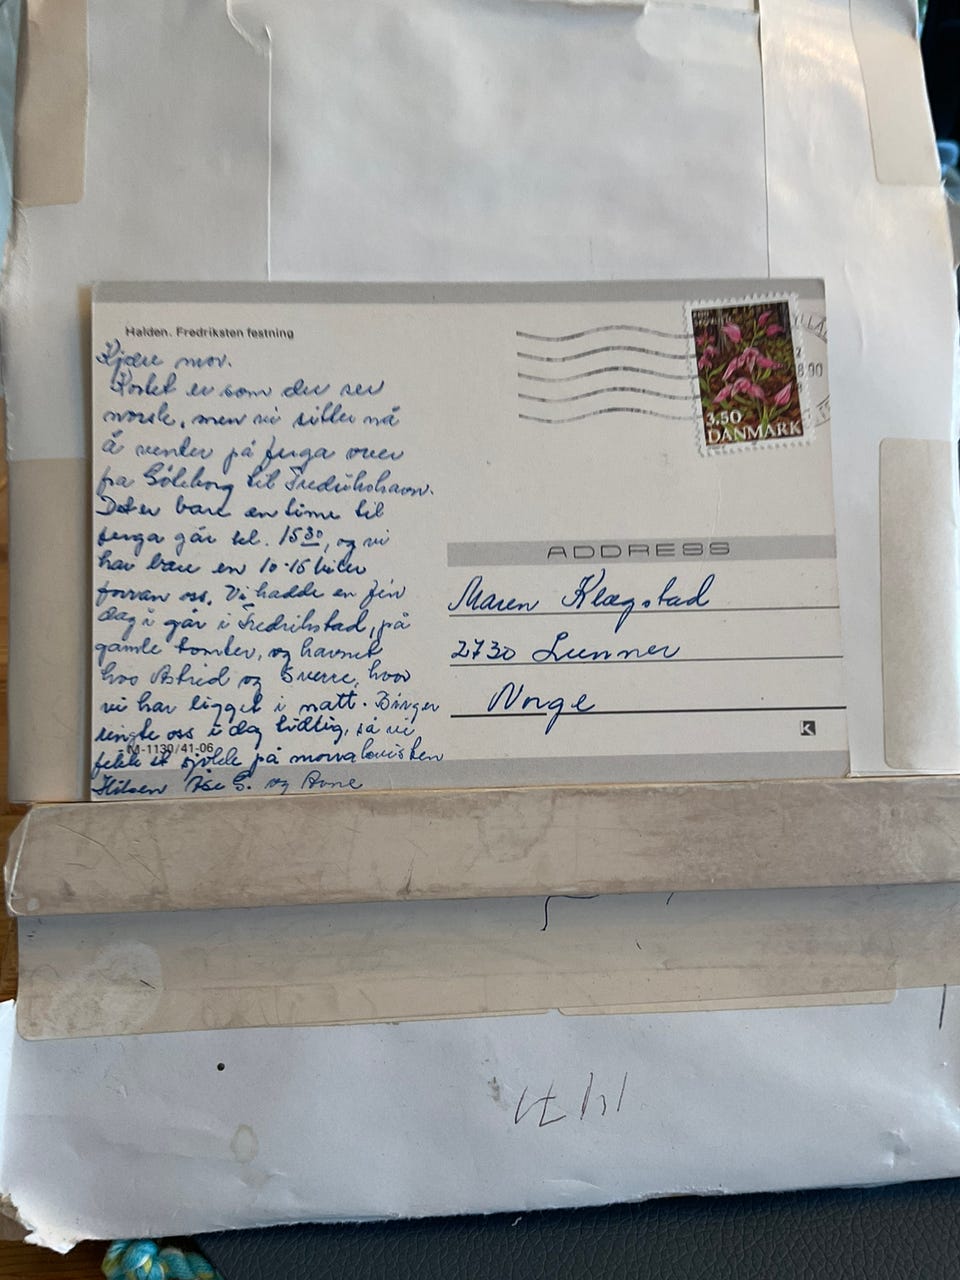 Halden. Fredriksten festning
Kjære mor.
Kortet er som du ser
norsk, men vi sitter nå
å venter på ferga over
fra Göteborg til Fredrikshavn.
Det er bare en time til
ferga går kl. 15³⁰, og vi
har bare en 10-15 biler
forran oss. Vi hadde en fin
dag i går i Fredrikstad, på
gamle tomter, og havnet
hos Astrid og Sverre, hvor
vi har ligget i natt. Birger
ringte oss i dag tidlig, så vi
fikk et på morra
M-1130/41-06
Hilsen Åse G. og Arne
3,50
DANMARK
8.90
ADDRESS
Maren Klægstad
2730 Lunner
Norge
K